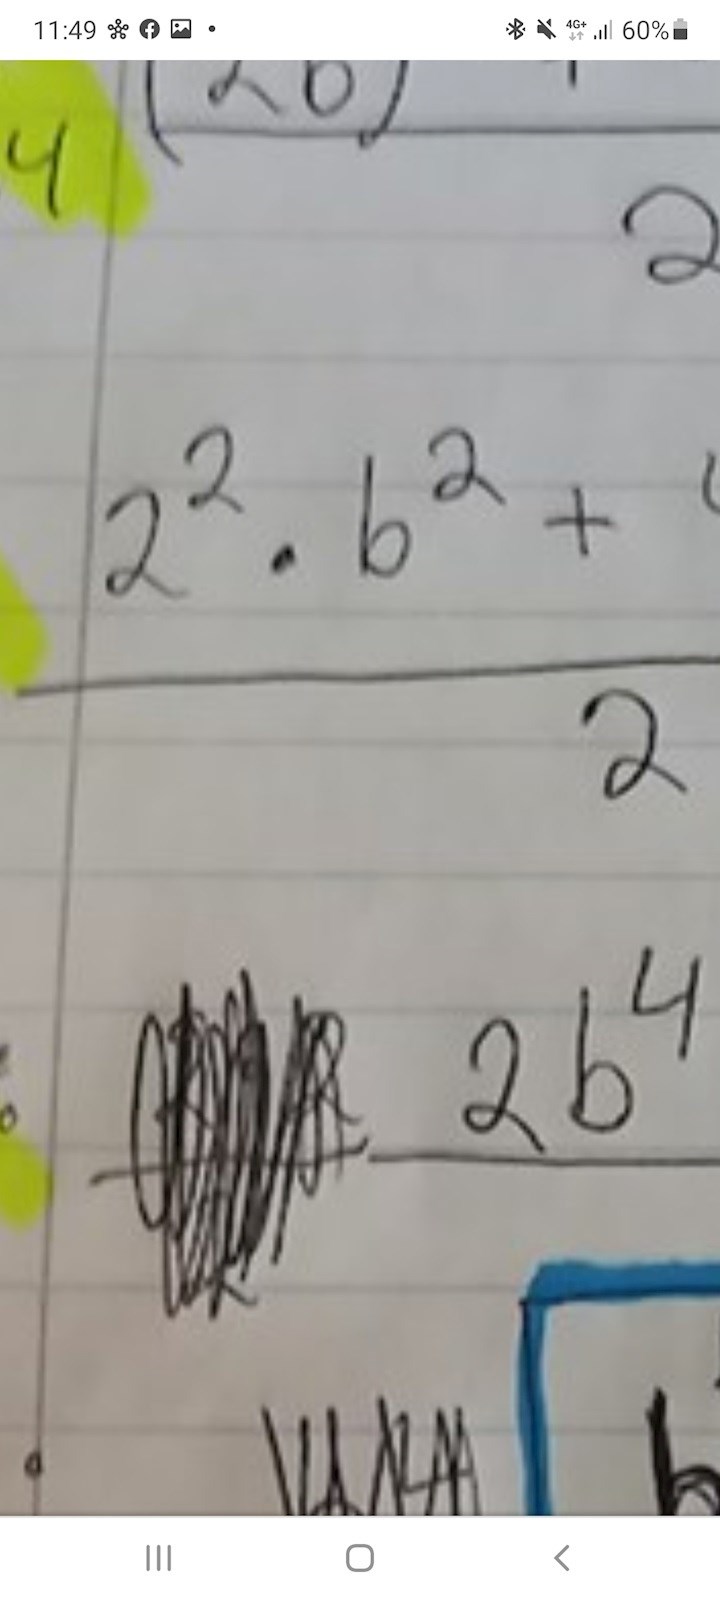 11:49 4G+ 60%
(2b) +
4
2
2² · b² +
2
2b⁴
b